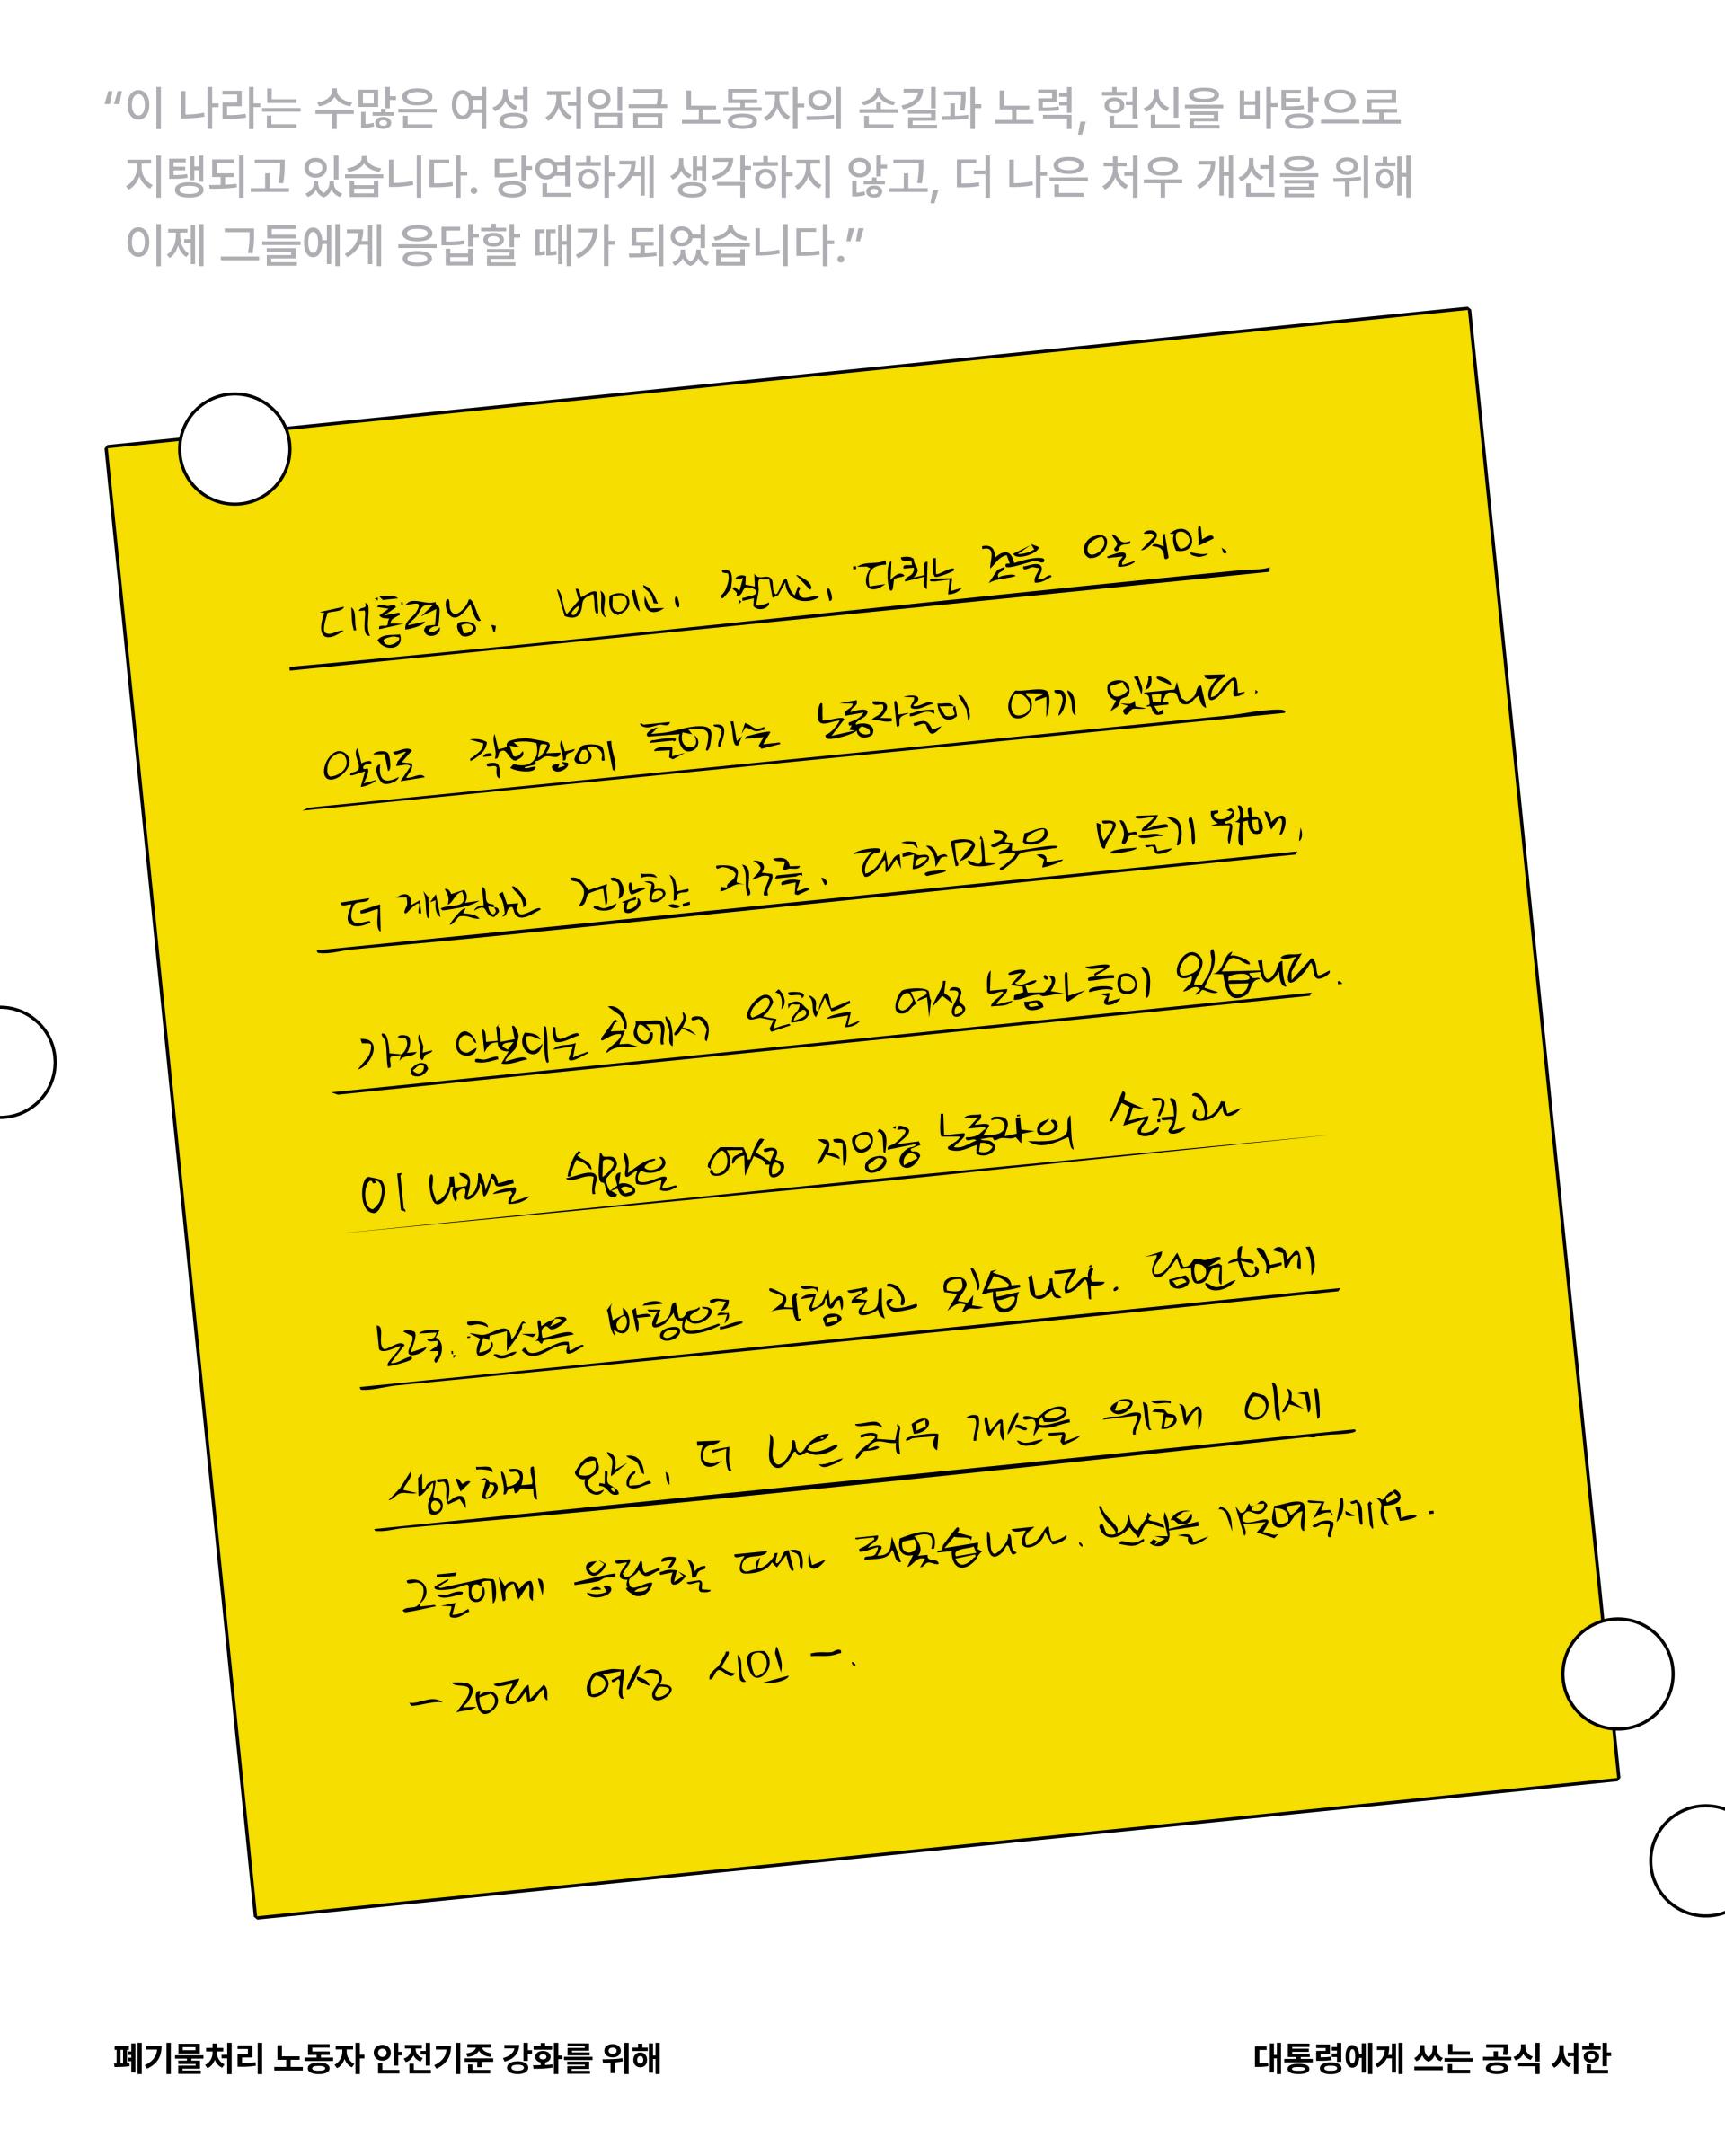 “이 나라는 수많은 여성 저임금 노동자의 손길과 노력, 헌신을 바탕으로
지탱되고 있습니다. 당연하게 생각하지 않고, 더 나은 처우 개선을 위해
이제 그들에게 응답할 때가 되었습니다.”
대통령님. 알지만.
노동자들이 여기 있습니다.
더 건강한 지구, 대한민국을 만들기 위해,
가장 일하는 여성 노동자들이 있습니다.
이 나라는 수많은 여성 저임금 노동자의 손길과
노력, 헌신을 바탕으로 지탱되고 있습니다. 당연하게
생각하지 않고, 더 나은 처우 개선을 위해 이제
그들에게 응답할 때가 되었습니다.
-20대 여성 시민 -.
폐기물처리 노동자 안전기준 강화를 위해
대통령에게 쓰는 공식 서한